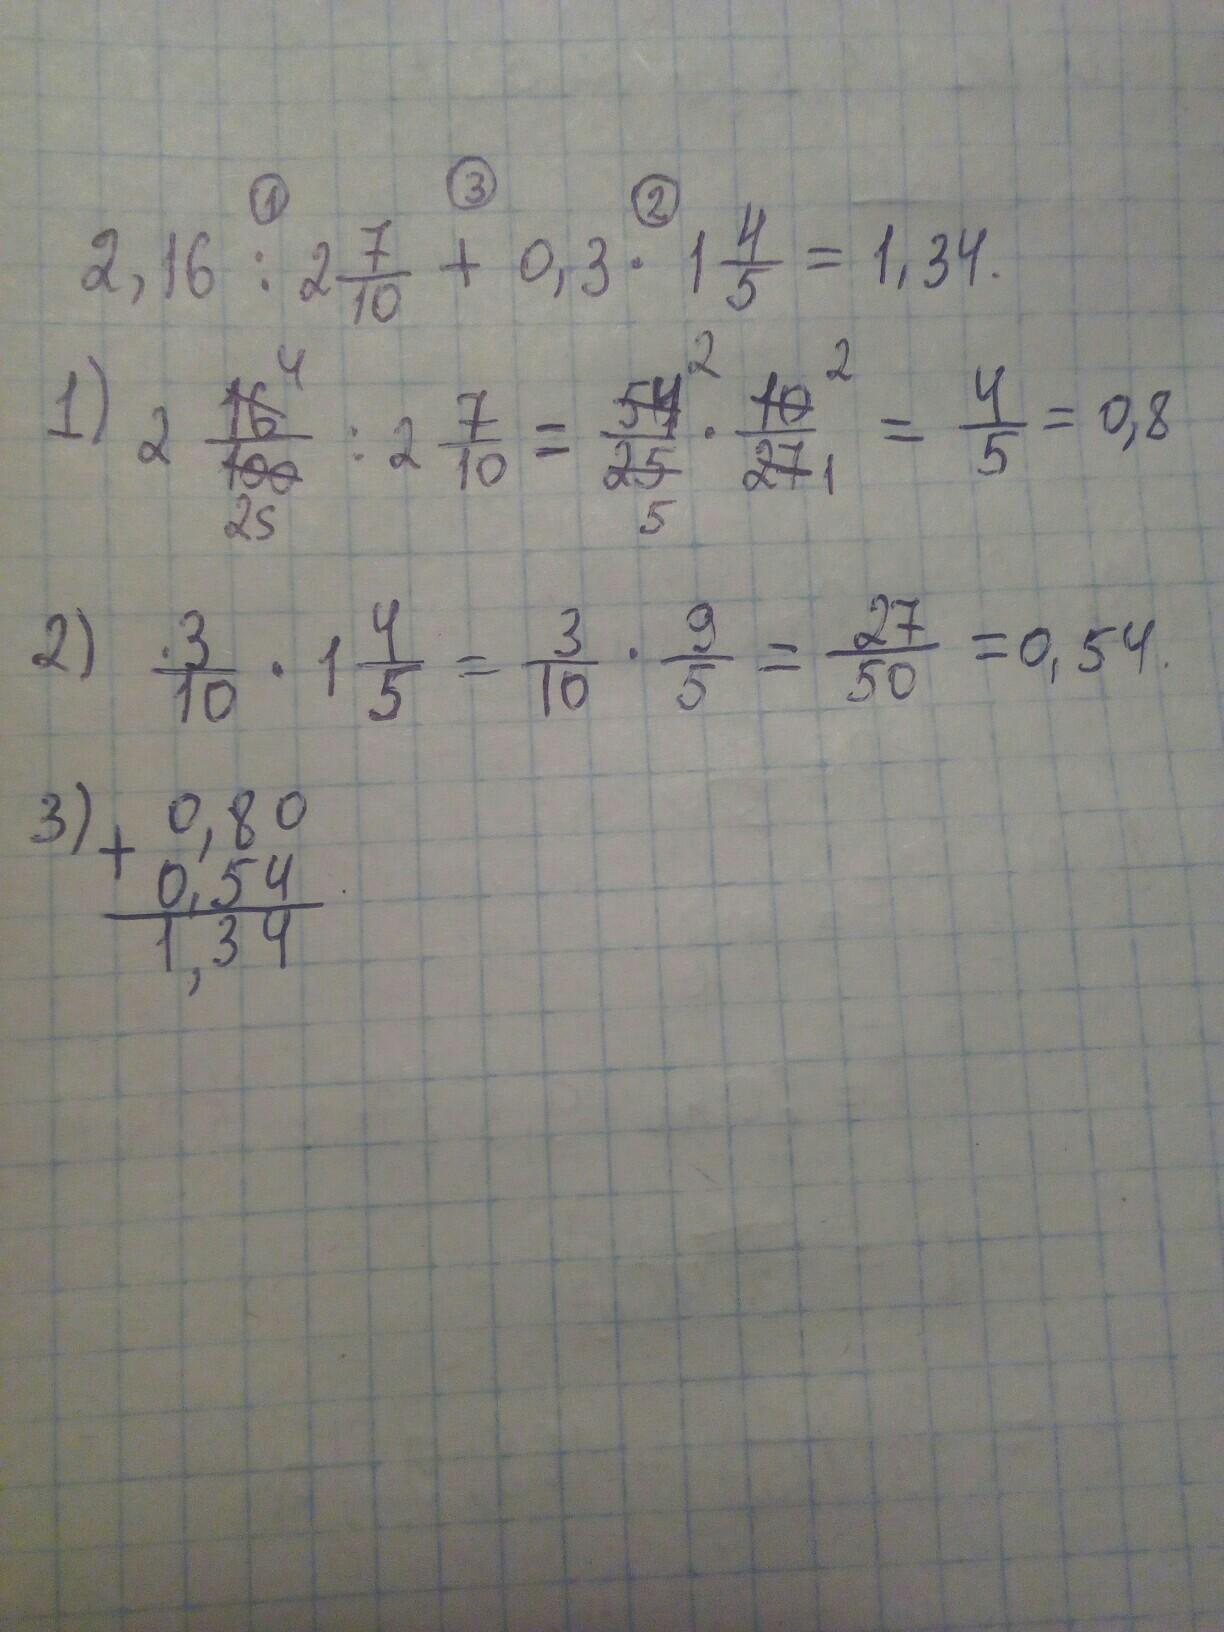 ① ③ ②
2,16 : 2 7/10 + 0,3 · 1 4/5 = 1,34.
1) 2 16/100 4 25 : 2 7/10 = 54/25 2 5 · 10/27 2 1 = 4/5 = 0,8
2) 3/10 · 1 4/5 = 3/10 · 9/5 = 27/50 = 0,54.
3) + 0,80
0,54
1,34